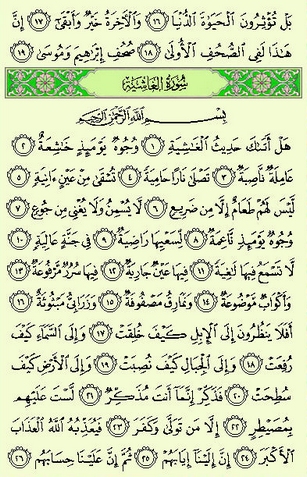 بَلْ تُؤْثِرُونَ ٱلْحَيَوٰةَ ٱلدُّنْيَا ١٦ وَٱلْءَاخِرَةُ خَيْرٌ وَأَبْقَىٰٓ ١٧ إِنَّ
هَٰذَا لَفِى ٱلصُّحُفِ ٱلْأُولَىٰ ١٨ صُحُفِ إِبْرَٰهِيمَ وَمُوسَىٰ ١٩
سُورَةُ الغَاشِيَةِ
بِسْمِ ٱللَّهِ ٱلرَّحْمَٰنِ ٱلرَّحِيمِ
هَلْ أَتَىٰكَ حَدِيثُ ٱلْغَٰشِيَةِ ١ وُجُوهٌ يَوْمَئِذٍ خَٰشِعَةٌ ٢
عَامِلَةٌ نَّاصِبَةٌ ٣ تَصْلَىٰ نَارًا حَامِيَةً ٤ تُسْقَىٰ مِنْ عَيْنٍ ءَانِيَةٍ ٥
لَّيْسَ لَهُمْ طَعَامٌ إِلَّا مِن ضَرِيعٍ ٦ لَّا يُسْمِنُ وَلَا يُغْنِى مِن جُوعٍ ٧
وُجُوهٌ يَوْمَئِذٍ نَّاعِمَةٌ ٨ لِّسَعْيِهَا رَاضِيَةٌ ٩ فِى جَنَّةٍ عَالِيَةٍ ١٠
لَّا تَسْمَعُ فِيهَا لَٰغِيَةً ١١ فِيهَا عَيْنٌ جَارِيَةٌ ١٢ فِيهَا سُرُرٌ مَّرْفُوعَةٌ ١٣
وَأَكْوَابٌ مَّوْضُوعَةٌ ١٤ وَنَمَارِقُ مَصْفُوفَةٌ ١٥ وَزَرَابِىُّ مَبْثُوثَةٌ ١٦
أَفَلَا يَنظُرُونَ إِلَى ٱلْإِبِلِ كَيْفَ خُلِقَتْ ١٧ وَإِلَى ٱلسَّمَآءِ كَيْفَ
رُفِعَتْ ١٨ وَإِلَى ٱلْجِبَالِ كَيْفَ نُصِبَتْ ١٩ وَإِلَى ٱلْأَرْضِ كَيْفَ
سُطِحَتْ ٢٠ فَذَكِّرْ إِنَّمَآ أَنتَ مُذَكِّرٌ ٢١ لَّسْتَ عَلَيْهِم
بِمُصَيْطِرٍ ٢٢ إِلَّا مَن تَوَلَّىٰ وَكَفَرَ ٢٣ فَيُعَذِّبُهُ ٱللَّهُ ٱلْعَذَابَ
ٱلْأَكْبَرَ ٢٤ إِنَّ إِلَيْنَآ إِيَابَهُمْ ٢٥ ثُمَّ إِنَّ عَلَيْنَا حِسَابَهُم ٢٦